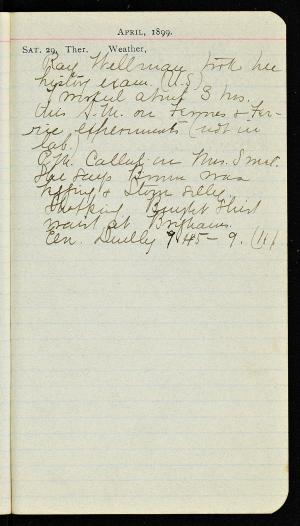 April, 1899.
Sat. 29, Ther. Weather,
Ray Wellman took her
history exam. (U.S.)
I worked about 3 hrs.
this A.M. on Ferrous & Fer-
ric experiments (not in
lab.)
P.M. Called on Mrs.
She says Brown was
& Stone silly.
Shopping. Bought Shirt
waist at Brighams.
Eve. Dudley 7 45 - 9.